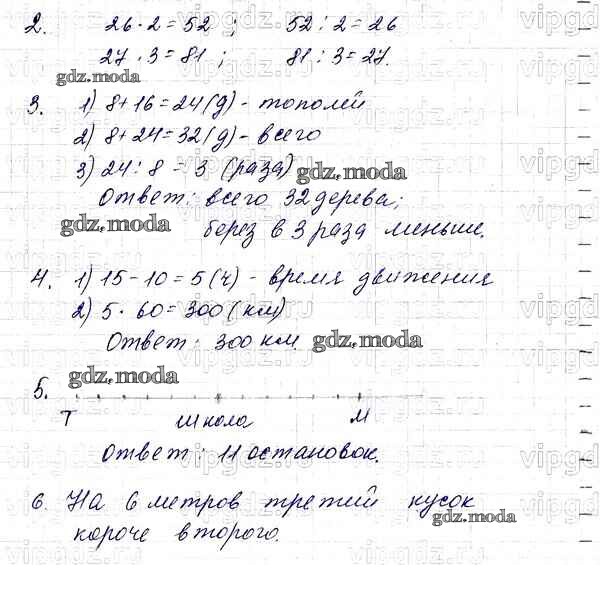 2. 26 · 2 = 52 ; 52 : 2 = 26
27 · 3 = 81 ; 81 : 3 = 27.
gdz.moda
3. 1) 8 + 16 = 24 (д) - тополей
2) 8 + 24 = 32 (д) - всего
3) 24 : 8 = 3 (раза) gdz.moda
Ответ: всего 32 дерева;
gdz.moda берез в 3 раза меньше.
4. 1) 15 - 10 = 5 (ч) - время движения
2) 5 · 60 = 300 (км)
Ответ: 300 км. gdz.moda
gdz.moda
5.
Т школа М
Ответ: 11 остановок.
6. На 6 метров третий кусок
gdz.moda
короче второго.